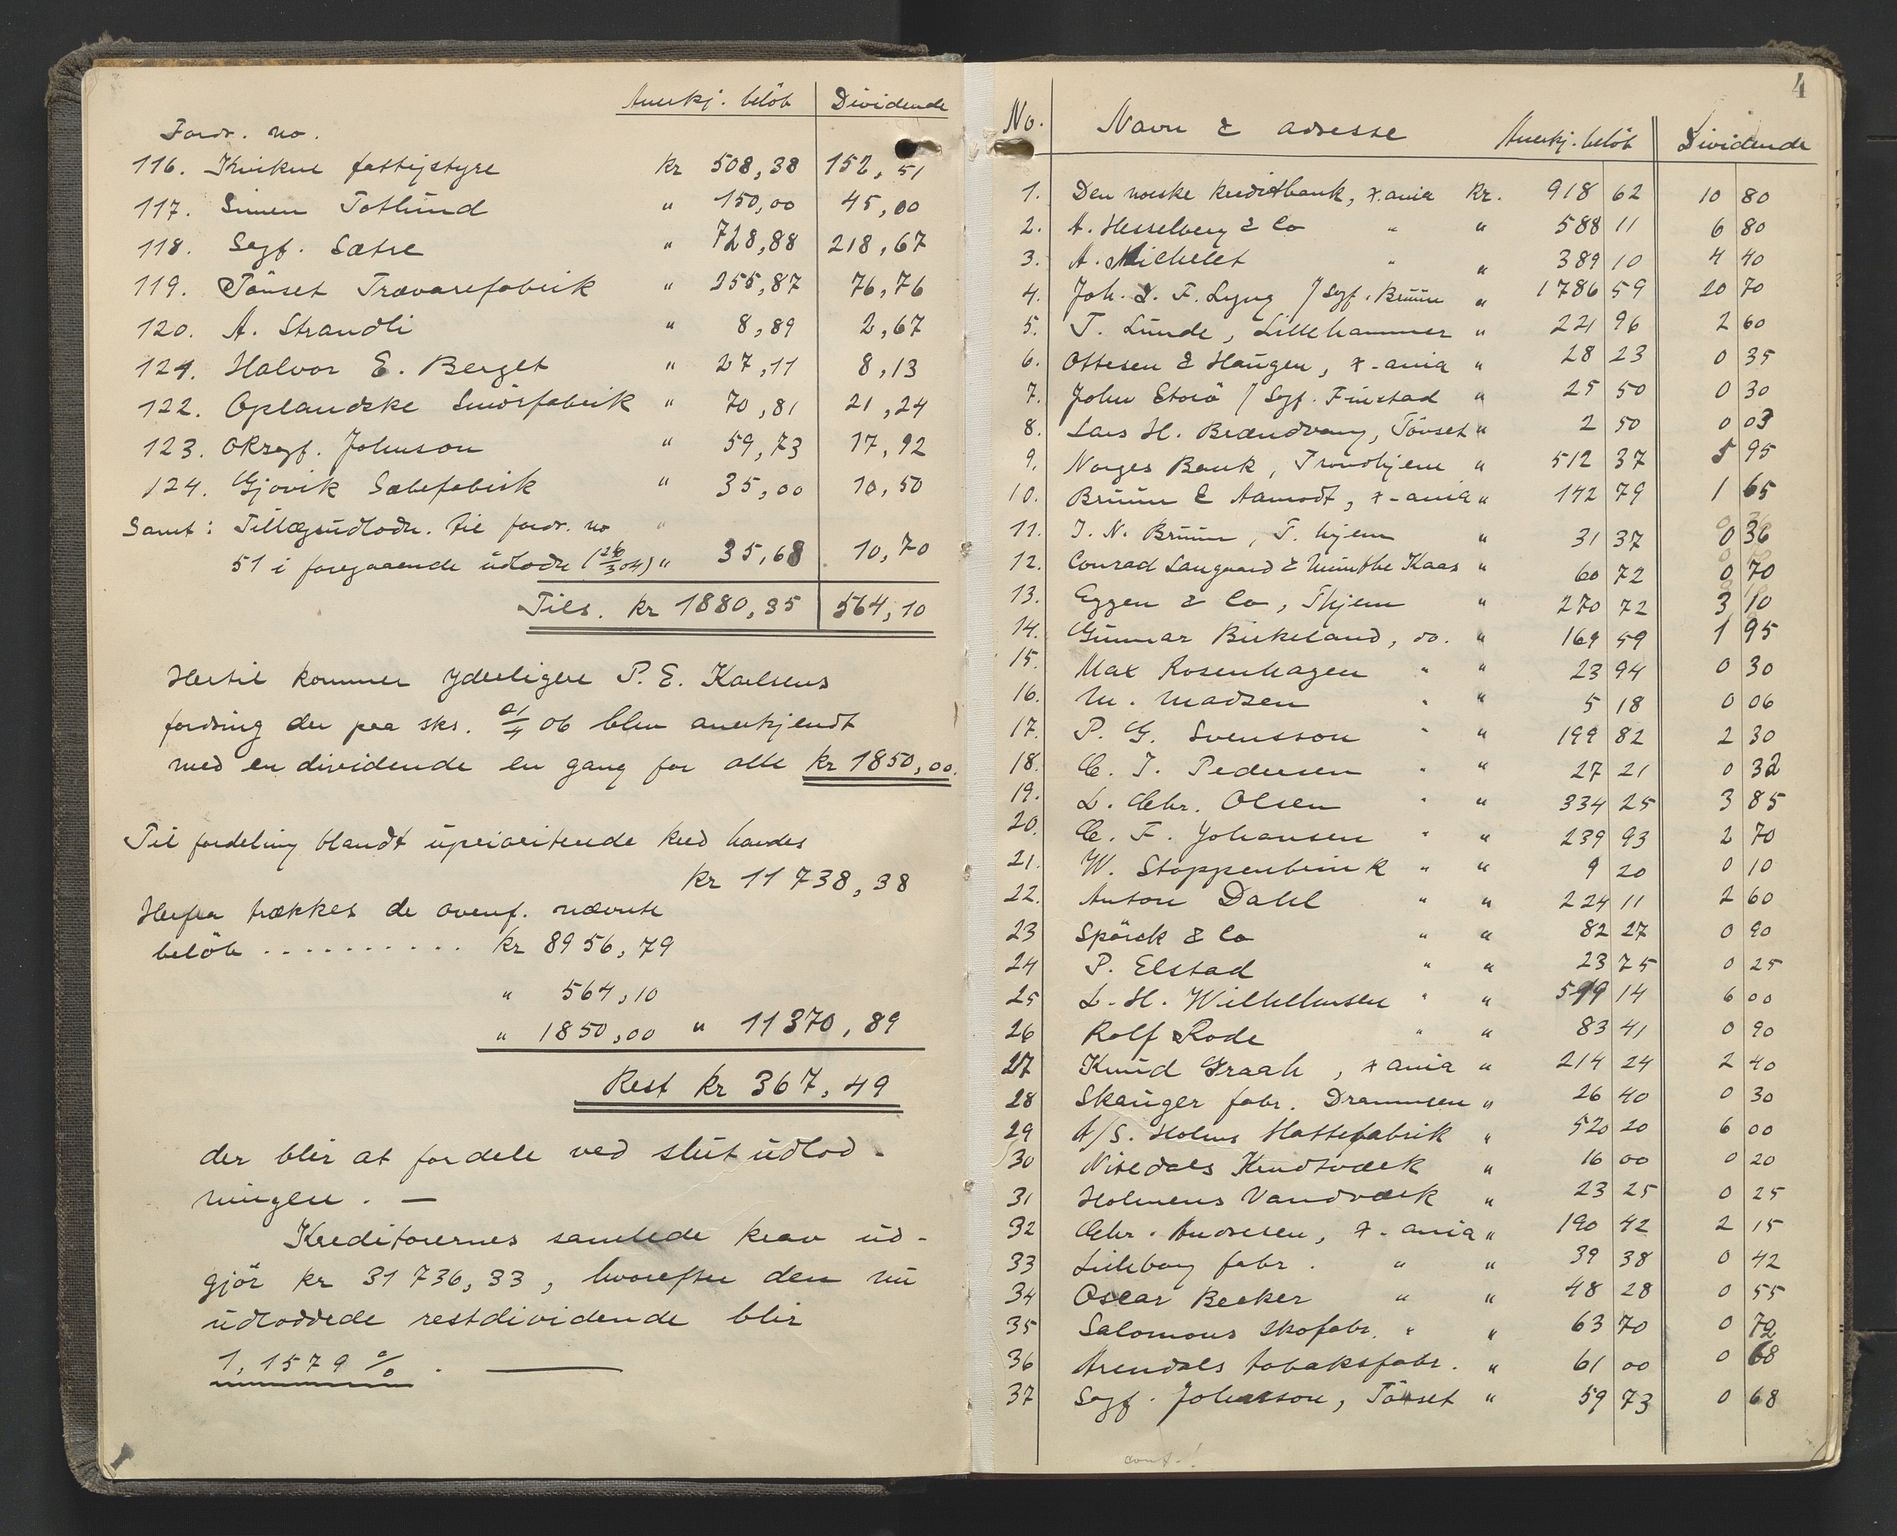 Anerkj. beløb | Dividende
Fordr. no.
116. Kvikne fattigstyre kr 508,38 152,51
117. Simen Totlund " 150,00 45,00
118. Sagf. Sætre " 728,88 218,67
119. Tönset Trævarefabrik " 255,87 76,76
120. A. Strandli " 8,89 2,67
121. Halvor E. Berget " 27,11 8,13
122. Oplandske Smörfabrik " 70,81 21,24
123. Oksagf. Johnson " 59,73 17,92
124. Gjøvik Sæbefabrik " 35,00 10,50
Samt: Tillægsudlodn. til fordr. no "
51 i foregaaende udlodn (26/3 04) " 35,68 10,70
Tils. kr 1880,35 564,10
Hertil kommer yderligere P. E. Karlsens
fordring der paa sks. 21/4 06 blev anerkjendt
med en dividende en gang for alle kr 1850,00.
Til fordeling blandt uprioriterede kred havdes
kr 11738,38
Herfra trækkes de ovenf. nævnte
beløb .......... kr 8956,79
" 564,10
" 1850,00 " 11370,89
Rest kr 367,49
der blir at fordele ved slutudlod-
ningen. —
Kreditorernes samlede krav ud-
gjör kr 31736,33, hvorefter den nu
udloddede restdividende blir
1,1579 %. ——
4
No. Navn & adresse Anerkj. beløb Dividende
1. Den norske Kreditbank, X.ania kr. 918 62 10 80
2. A. Hesselberg & Co " " 588 11 6 80
3. A. Michelet " " 389 10 4 40
4. Joh. L. F. Lyng / Sagf. Bruun " 1786 59 20 70
5. T. Lunde, Lillehammer " 221 96 2 60
6. Ottesen & Haugen, X-ania " 28 23 0 35
7. John Storö / Sagf. Finstad " 25 50 0 30
8. Lars H. Brændvang, Tönset " 2 50 0 03
9. Norges Bank, Trondhjem " 512 37 5 95
10. Bruun & Aamodt, X-ania " 142 79 1 65
11. J. N. Bruun, T. hjem " 31 37 0 36
12. Conrad Langaard & Munthe Kaas " 60 72 0 70
13. Eggen & Co, Thjem " 270 72 3 10
14. Gunnar Birkeland, do. " 169 59 1 95
15. Max Rosenhagen " " 23 94 0 30
16. M. Madsen " " 5 18 0 06
17. P. G. Svensson " " 199 82 2 30
18. C. J. Pedersen " " 27 21 0 32
19. L. Chr. Olsen " " 334 25 3 85
20. C. F. Johansen " " 239 93 2 70
21. W. Stoppenbrink " " 9 20 0 10
22. Anton Dahl " " 224 11 2 60
23 Spörck & Co " " 82 27 0 90
24 P. Elstad " " 23 75 0 25
25 L. H. Wilhelmsen " " 519 14 6 00
26 Rolf Rode " " 83 41 0 90
27 Knud Graah, X ania " 214 24 2 40
28 Skauger fabr. Drammen " 26 40 0 30
29 A/S. Holms Hattefabrik " 520 20 6 00
30 Nitedals Krudtværk " 16 00 0 20
31 Holmens Vandværk " 23 25 0 25
32 Chr. Andresen, X-ania " 190 42 2 15
33 Lilleborg fabr. " " 39 38 0 42
34 Oscar Becker " " 48 28 0 55
35 Salomons skofabr. " " 63 70 0 72
36 Arendals tobaksfabr. " 61 00 0 68
37 Sagf. Johnsson, Tönset " 59 73 0 68